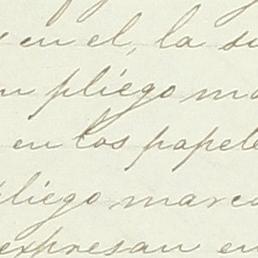 en el, la su
pliego ma
en los papele
pliego marca
expresan en